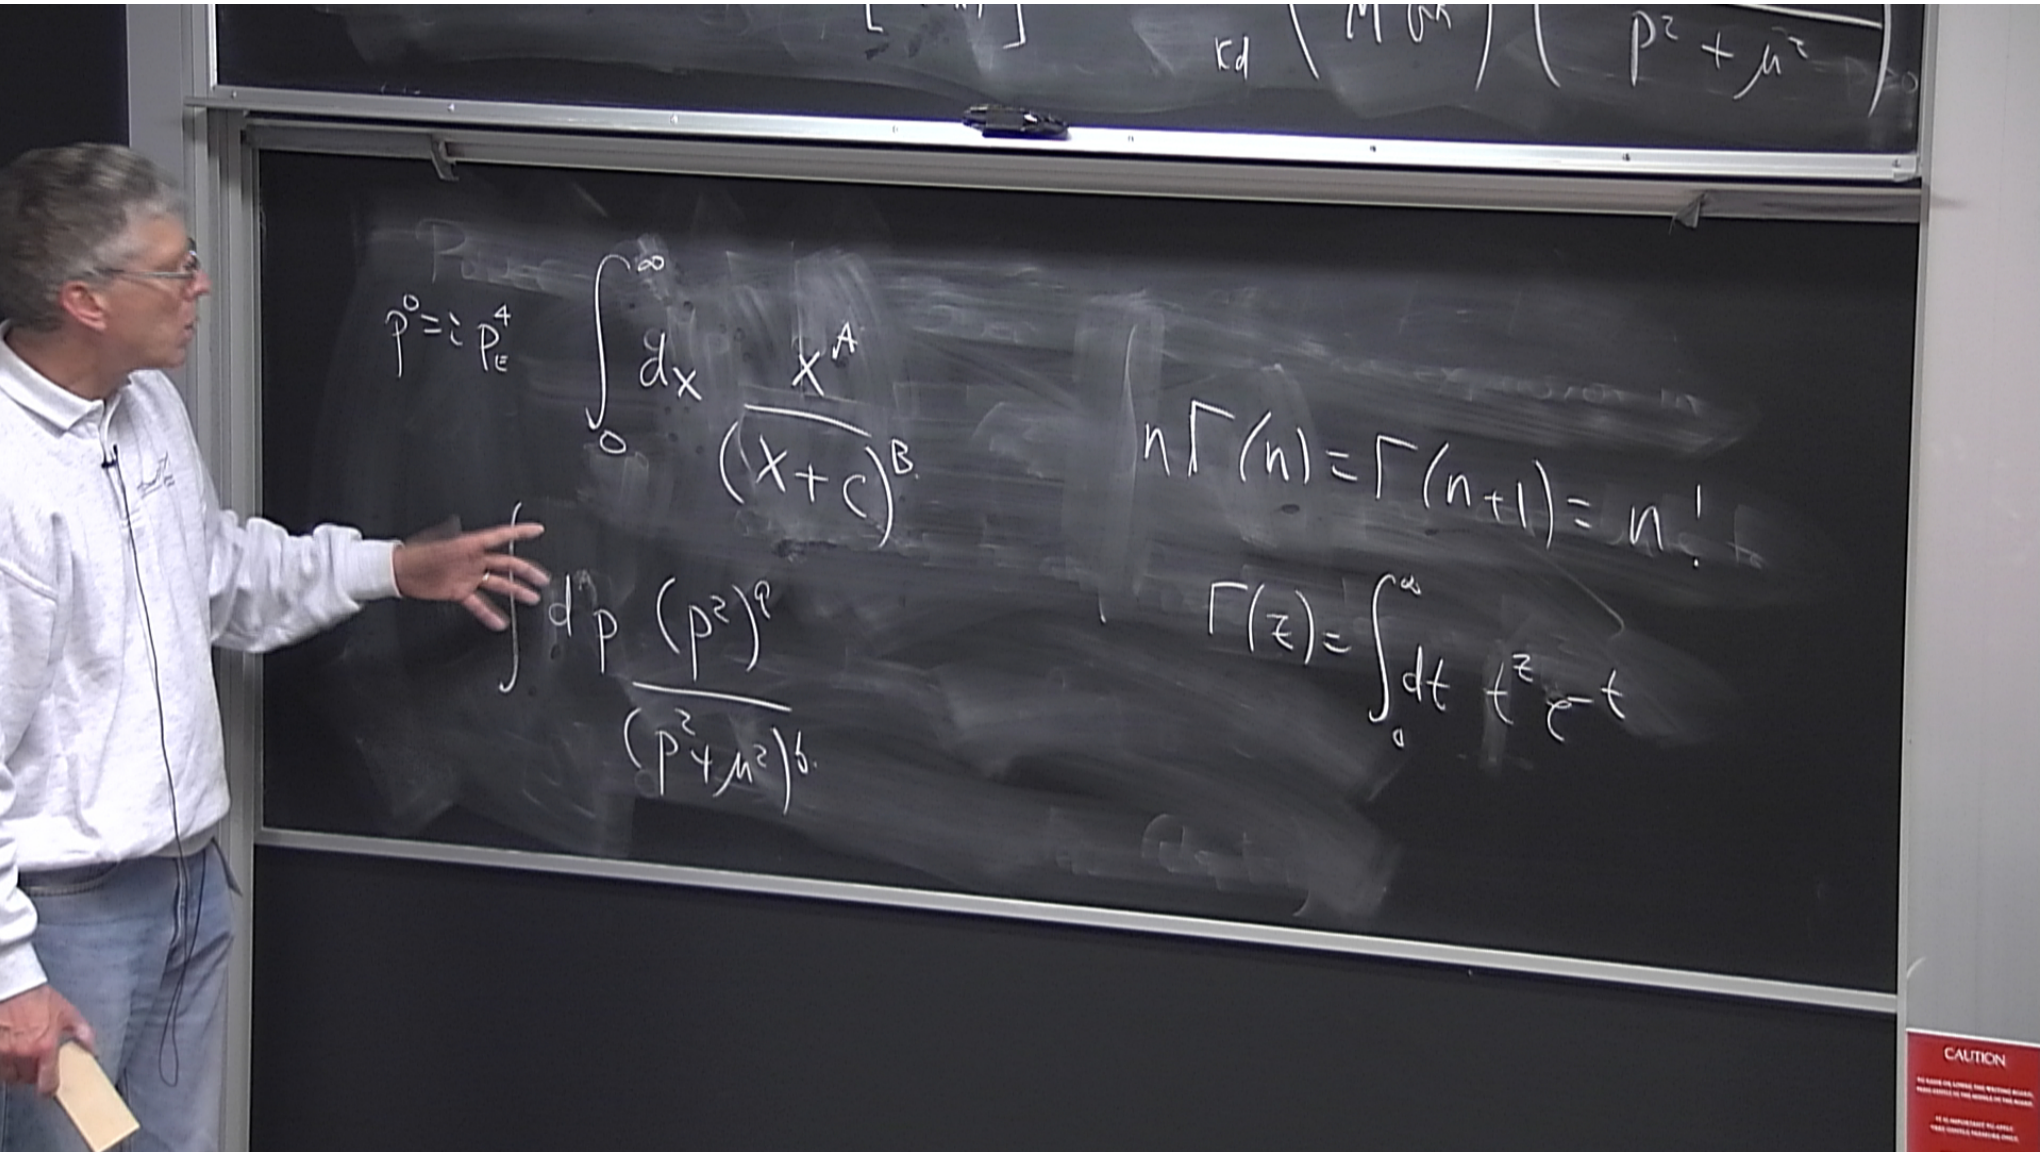 Kd
p² + μ²
p⁰ = i p_E⁴
∫₀^∞ dx x^A / (x+c)^B
n Γ(n) = Γ(n+1) = n!
∫ dⁿp (p²)^a / (p²+μ²)^b
Γ(z) = ∫₀^∞ dt t^z e^-t
CAUTION